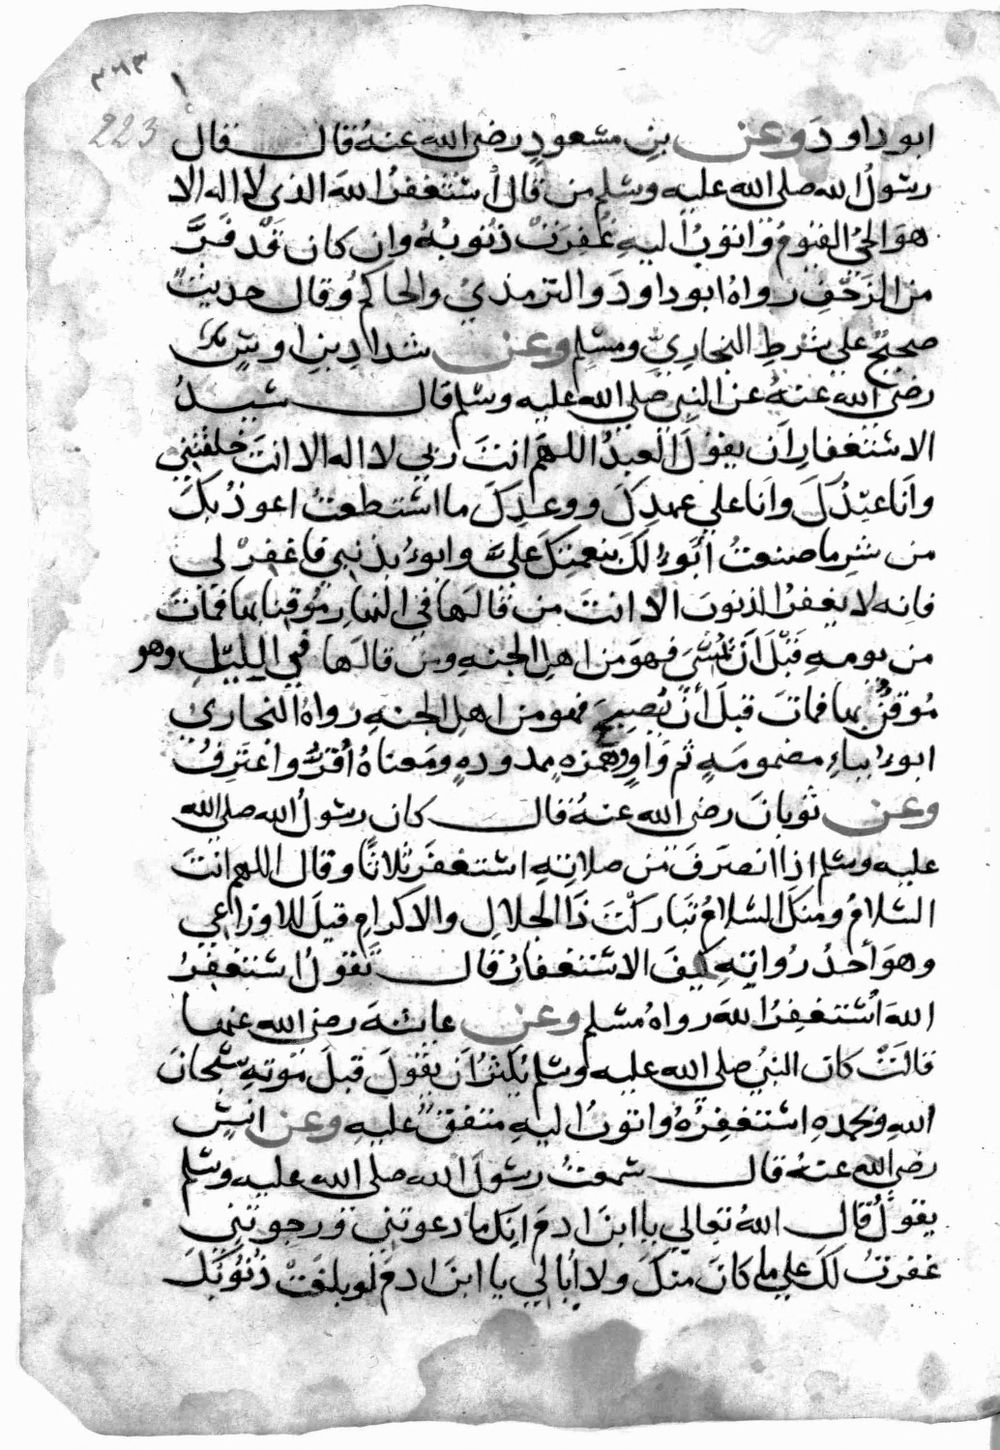 ٣٦٣
223
ابو داود وعن بن مسعود رضي الله عنه قال قال
رسول الله صلى الله عليه وسلم من قال أستغفر الله الذي لا اله الا
هو الحي القيوم واتوب اليه غفرت ذنوبه وان كان قد فر
من الزحف رواه ابو داود والترمذي والحاكم وقال حديث
صحيح على شرط البخاري ومسلم وعن شداد بن اوس
رضي الله عنه عن النبي صلى الله عليه وسلم قال سيد
الاستغفار ان يقول العبد اللهم انت ربي لا اله الا انت خلقتني
وانا عبدك وانا على عهدك ووعدك ما استطعت اعوذ بك
من شر ما صنعت أبوء لك بنعمتك علي وابوء بذنبي فاغفر لي
فانه لا يغفر الذنوب الا انت من قالها في النهار موقنا بها فمات
من يومه قبل ان يمسي فهو من اهل الجنه ومن قالها في الليل وهو
موقن بها فمات قبل أن يصبح فهو من اهل الجنه رواه البخاري
ابوء بباء مضمومه ثم واو وهمزه ممدوده ومعناه أقر واعترف
وعن ثوبان رضي الله عنه قال كان رسول الله صلى الله
عليه وسلم اذا انصرف من صلاته استغفر ثلاثا وقال اللهم انت
السلام ومنك السلام تباركت ذا الجلال والاكرام قيل للاوزاعي
وهو أحد رواته كيف الاستغفار قال تقول استغفر
الله أستغفر الله رواه مسلم وعن عايشه رضي الله عنها
قالت كان النبي صلى الله عليه وسلم يكثر ان يقول قبل موته سبحان
الله وبحمده استغفره واتوب اليه متفق عليه وعن انس
رضي الله عنه قال سمعت رسول الله صلى الله عليه وسلم
يقول قال الله تعالى يا ابن ادم انك ما دعوتني ورجوتني
غفرت لك على ما كان منك ولا أبالي يا ابن ادم لو بلغت ذنوبك